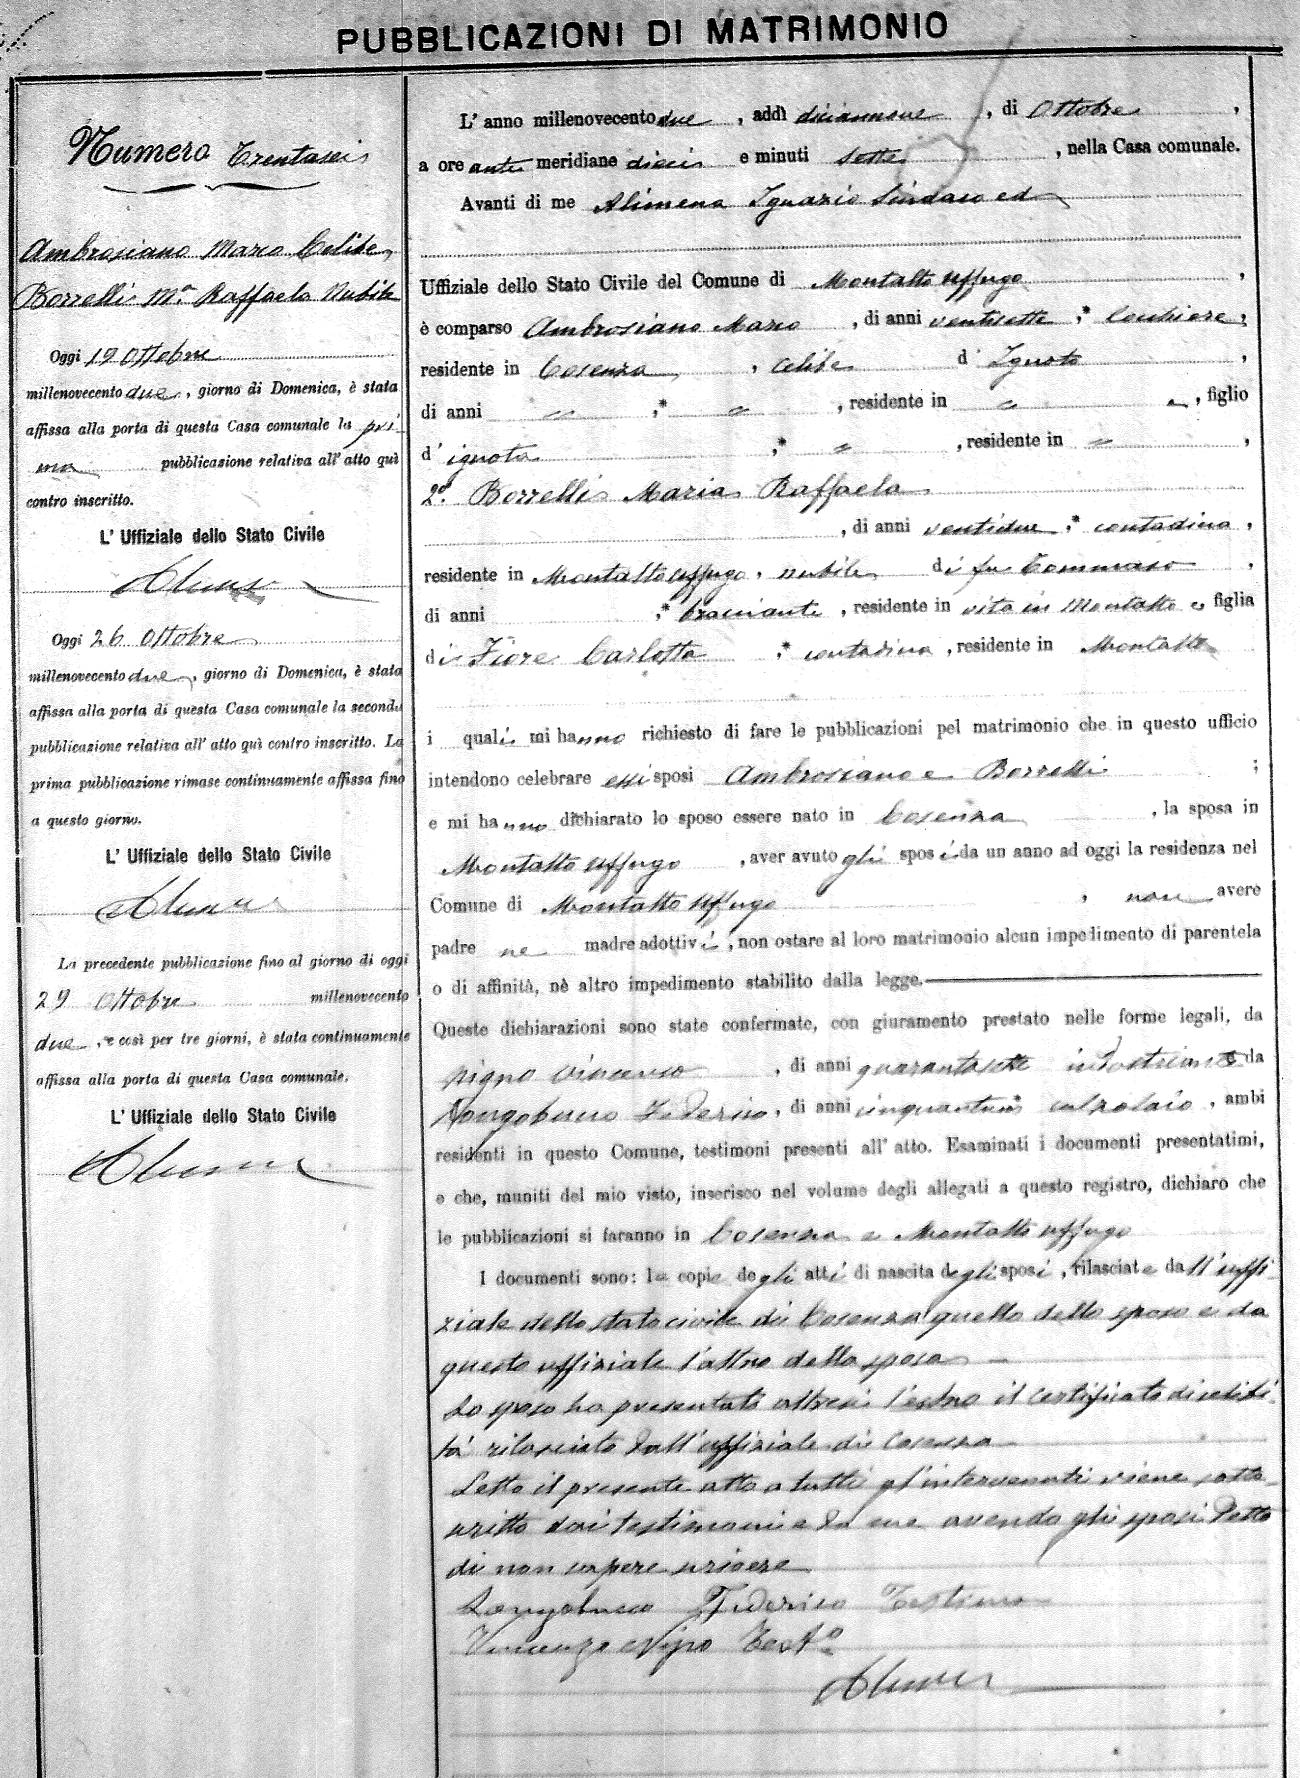 PUBBLICAZIONI DI MATRIMONIO
Numero Trentasei
Ambrosiano Mario Celibe
Borrelli M.a Raffaela Nubile
Oggi 19 Ottobre
millenovecento due, giorno di Domenica, è stata
affissa alla porta di questa Casa comunale la pri-
ma pubblicazione relativa all'atto quì
contro inscritto.
L'Uffiziale dello Stato Civile
Oggi 26 Ottobre
millenovecento due, giorno di Domenica, è stata
affissa alla porta di questa Casa comunale la seconda
pubblicazione relativa all'atto quì contro inscritto. La
prima pubblicazione rimase continuamente affissa fino
a questo giorno.
L'Uffiziale dello Stato Civile
La precedente pubblicazione fino al giorno di oggi
29 Ottobre millenovecento
due, e così per tre giorni, è stata continuamente
affissa alla porta di questa Casa comunale.
L'Uffiziale dello Stato Civile
L'anno millenovecento due, addì diciannove, di Ottobre,
a ore anti meridiane dieci e minuti sette, nella Casa comunale.
Avanti di me Alimena Ignazio Sindaco ed
Uffiziale dello Stato Civile del Comune di Montalto Uffugo,
è comparso Ambrosiano Mario, di anni ventisette, * Cocchiere,
residente in Cosenza, celibe d'Ignoto,
di anni " , * " , residente in " , figlio
d'ignota , * " , residente in " ,
2°. Borrelli Maria Raffaela
, di anni ventidue, * contadina,
residente in Montalto Uffugo, nubile di fu Tommaso,
di anni , * bracciante, residente in vita in Montalto e, figlia
di Fiore Carlotta , * contadina, residente in Montalto
i quali mi hanno richiesto di fare le pubblicazioni pel matrimonio che in questo ufficio
intendono celebrare essi sposi Ambrosiano e Borrelli ;
e mi hanno dichiarato lo sposo essere nato in Cosenza , la sposa in
Montalto Uffugo , aver avuto gli sposi da un anno ad oggi la residenza nel
Comune di Montalto Uffugo , non avere
padre ne madre adottivi, non ostare al loro matrimonio alcun impedimento di parentela
o di affinità, nè altro impedimento stabilito dalla legge.
Queste dichiarazioni sono state confermate, con giuramento prestato nelle forme legali, da
Nigro Vincenzo , di anni quarantasette industriante da
Longobucco Federico, di anni cinquantuno calzolaio, ambi
residenti in questo Comune, testimoni presenti all'atto. Esaminati i documenti presentatimi,
e che, muniti del mio visto, inserisco nel volume degli allegati a questo registro, dichiaro che
le pubblicazioni si faranno in Cosenza e Montalto Uffugo
I documenti sono: le copie degli atti di nascita degli sposi, rilasciate dall'uffi-
ziale dello stato civile di Cosenza quello dello sposo e da
questo uffiziale l'altro della sposa
Lo sposo ha presentato altresì il certificato di celibi-
tà rilasciato dall'uffiziale di Cosenza
Letto il presente atto a tutti gl'intervenuti viene sotto
scritto dai testimoni e da me avendo gli sposi detto
di non sapere scrivere
Longobucco Federico Testimo
Vincenzo Nigro Test°